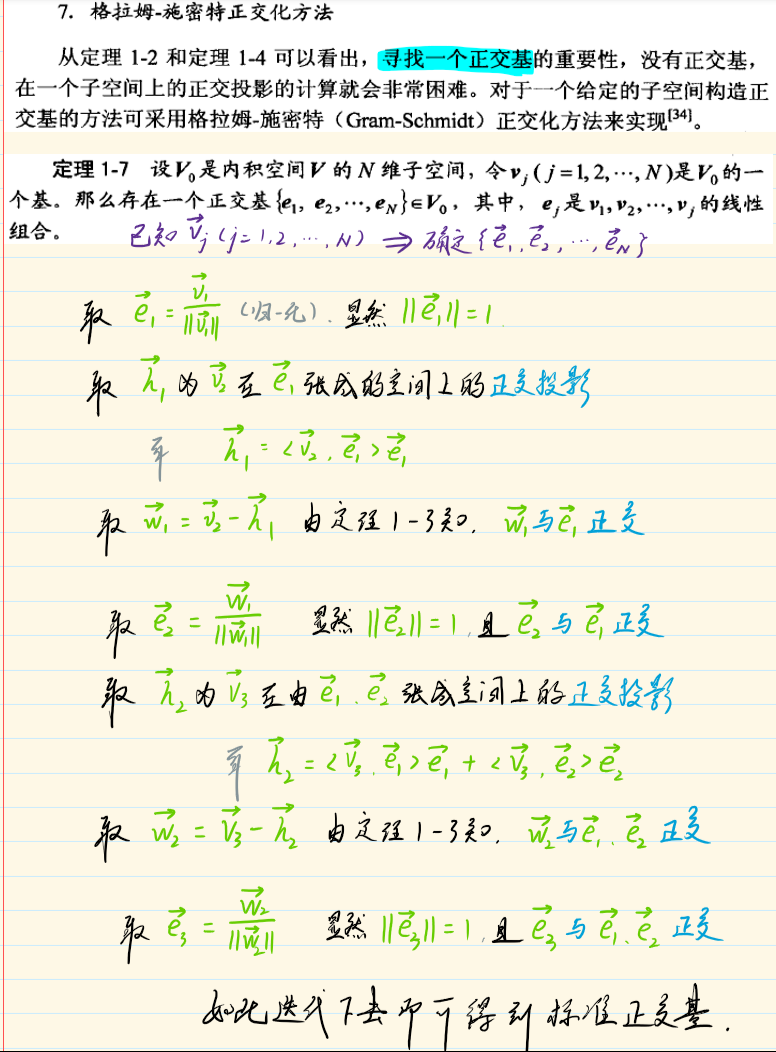 7. 格拉姆-施密特正交化方法
从定理 1-2 和定理 1-4 可以看出，寻找一个正交基的重要性，没有正交基，
在一个子空间上的正交投影的计算就会非常困难。对于一个给定的子空间构造正
交基的方法可采用格拉姆-施密特（Gram-Schmidt）正交化方法来实现[34]。
定理 1-7 设V₀是内积空间V 的 N 维子空间，令vⱼ(j=1,2,⋯,N)是V₀的一
个基。那么存在一个正交基{e₁, e₂,⋯,e_N}∈V₀，其中，eⱼ是v₁,v₂,⋯,vⱼ的线性
组合。
已知 v⃗ⱼ(j=1,2,⋯,N) ⇒ 确定{e⃗₁,e⃗₂,⋯,e⃗_N}
取 e⃗₁ = v⃗₁/||v⃗₁|| (归一化). 显然 ||e⃗₁||=1.
取 h⃗₁ 为 v⃗₂ 在 e⃗₁ 张成的空间上的正交投影
即 h⃗₁ = <v⃗₂, e⃗₁>e⃗₁
取 w⃗₁ = v⃗₂ - h⃗₁ 由定理1-3知, w⃗₁与e⃗₁ 正交
取 e⃗₂ = w⃗₁/||w⃗₁|| 显然 ||e⃗₂||=1, 且 e⃗₂ 与 e⃗₁ 正交
取 h⃗₂ 为 v⃗₃ 在由 e⃗₁、e⃗₂ 张成空间上的正交投影
即 h⃗₂ = <v⃗₃, e⃗₁>e⃗₁ + <v⃗₃, e⃗₂>e⃗₂
取 w⃗₂ = v⃗₃ - h⃗₂ 由定理1-3知, w⃗₂与e⃗₁、e⃗₂ 正交
取 e⃗₃ = w⃗₂/||w⃗₂|| 显然 ||e⃗₃||=1, 且 e⃗₃ 与 e⃗₁、e⃗₂ 正交
如此迭代下去即可得到标准正交基.